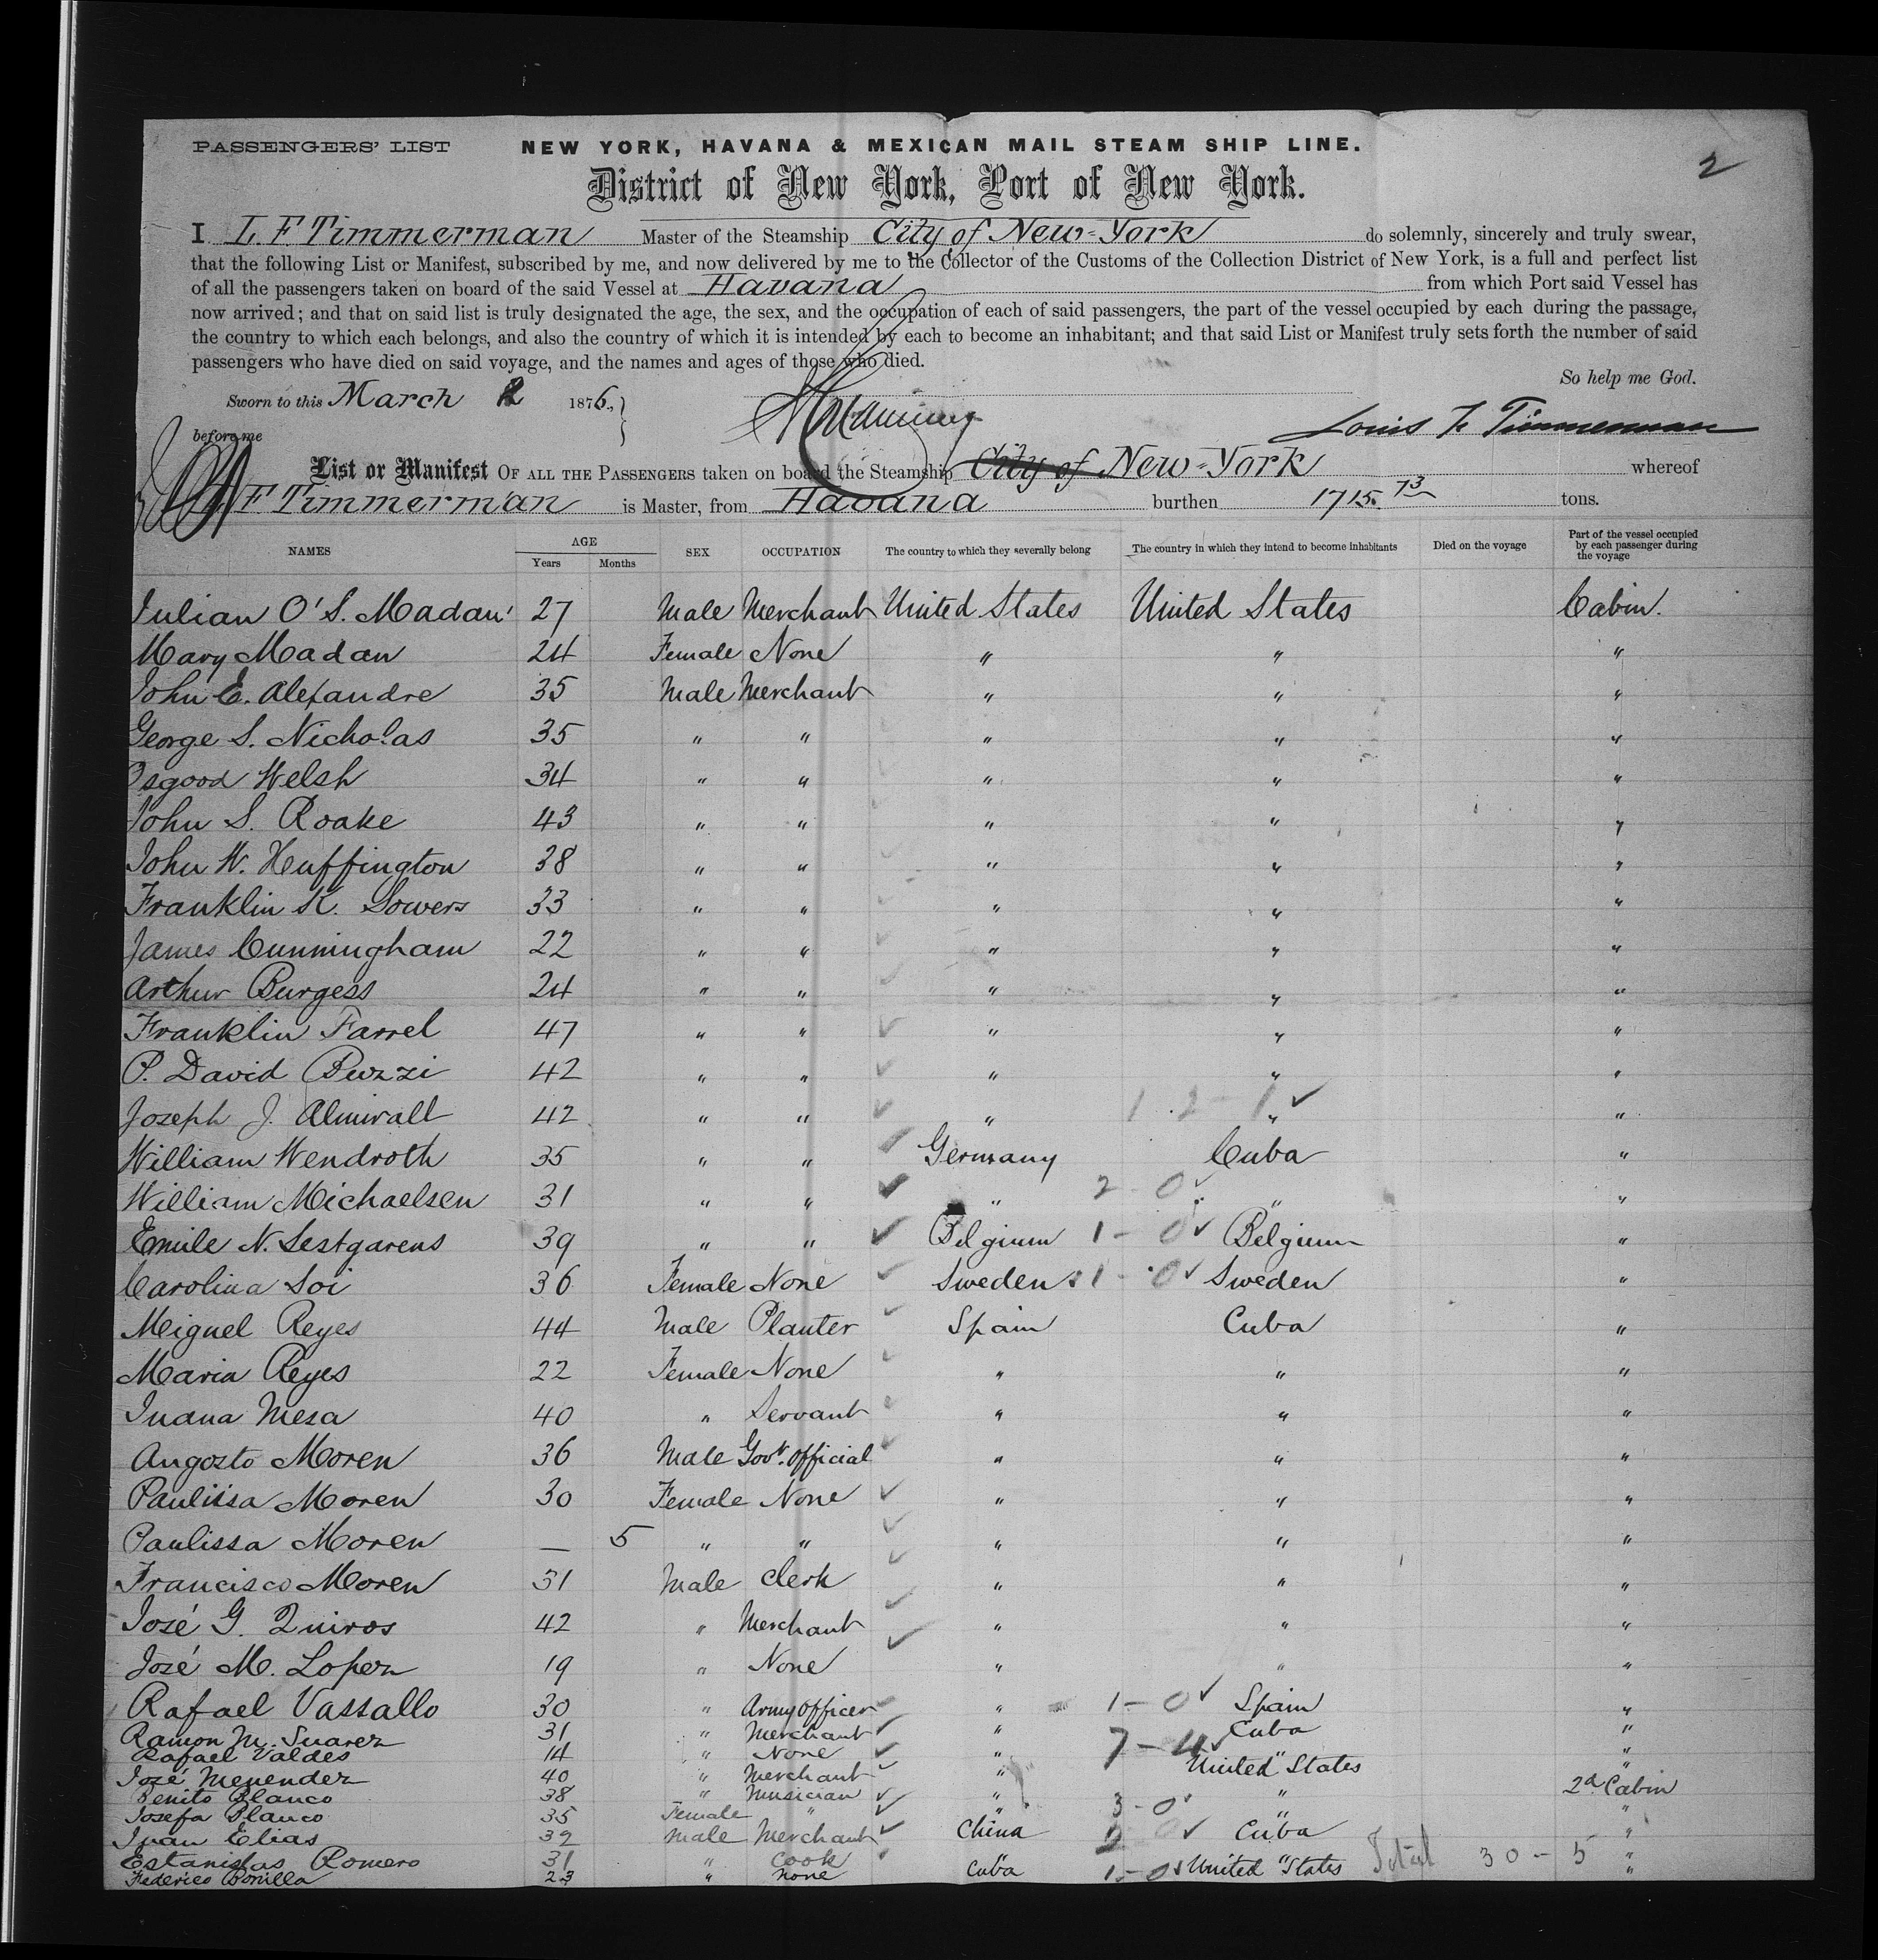 PASSENGERS' LIST NEW YORK, HAVANA & MEXICAN MAIL STEAM SHIP LINE. 2
District of New York, Port of New York.
I L. F. Timmerman Master of the Steamship City of New-York do solemnly, sincerely and truly swear,
that the following List or Manifest, subscribed by me, and now delivered by me to the Collector of the Customs of the Collection District of New York, is a full and perfect list
of all the passengers taken on board of the said Vessel at Havana from which Port said Vessel has
now arrived; and that on said list is truly designated the age, the sex, and the occupation of each of said passengers, the part of the vessel occupied by each during the passage,
the country to which each belongs, and also the country of which it is intended by each to become an inhabitant; and that said List or Manifest truly sets forth the number of said
passengers who have died on said voyage, and the names and ages of those who died.
So help me God.
Sworn to this March 2 1876,
before me Louis F. Timmerman
List or Manifest OF ALL THE PASSENGERS taken on board the Steamship City of New-York whereof
F Timmerman is Master, from Havana burthen 1715 73 tons.
NAMES AGE Years Months SEX OCCUPATION The country to which they severally belong The country in which they intend to become inhabitants Died on the voyage Part of the vessel occupied by each passenger during the voyage
Julian O'S. Madan 27 Male Merchant United States United States Cabin.
Mary Madan 24 Female None " " "
John E. Alexandre 35 Male Merchant " " "
George S. Nicholas 35 " " " " "
Osgood Welsh 34 " " " " "
John S. Roake 43 " " " " "
John W. Huffington 38 " " " " "
Franklin K. Sowers 33 " " " " "
James Cunningham 22 " " " " "
Arthur Burgess 24 " " " " "
Franklin Farrel 47 " " " " "
P. David Buzzi 42 " " " " "
Joseph J. Almirall 42 " " " 12 - 1 " "
William Wendroth 35 " " Germany Cuba "
William Michaelsen 31 " " " 2 - 0 " "
Emile N. Lestgarens 39 " " Belgium 1 - 0 Belgium "
Carolina Soi 36 Female None Sweden 1 - 0 Sweden "
Miguel Reyes 44 Male Planter Spain Cuba "
Maria Reyes 22 Female None " " "
Juana Mesa 40 " Servant " " "
Augosto Moren 36 Male Govt. official " " "
Paulissa Moren 30 Female None " " "
Paulissa Moren — 5 " " " " "
Francisco Moren 31 Male Clerk " " "
José G. Quiros 42 " Merchant " " "
José M. Lopez 19 " None " " "
Rafael Vassallo 30 " Army officer " 1 - 0 Spain "
Ramon M. Suarez 31 " Merchant " Cuba "
Rafael Valdes 14 " None " 7 - 4 " "
José Menendez 40 " Merchant " United States "
Benito Blanco 38 " Musician " " 2d Cabin
Josefa Blanco 35 Female " " 3 - 0 " "
Juan Elias 32 Male Merchant China 2 0 Cuba "
Estanislas Romero 31 " Cook " " "
Federico Bonilla 23 " None Cuba 1 - 0 United States Total 30 - 5 "